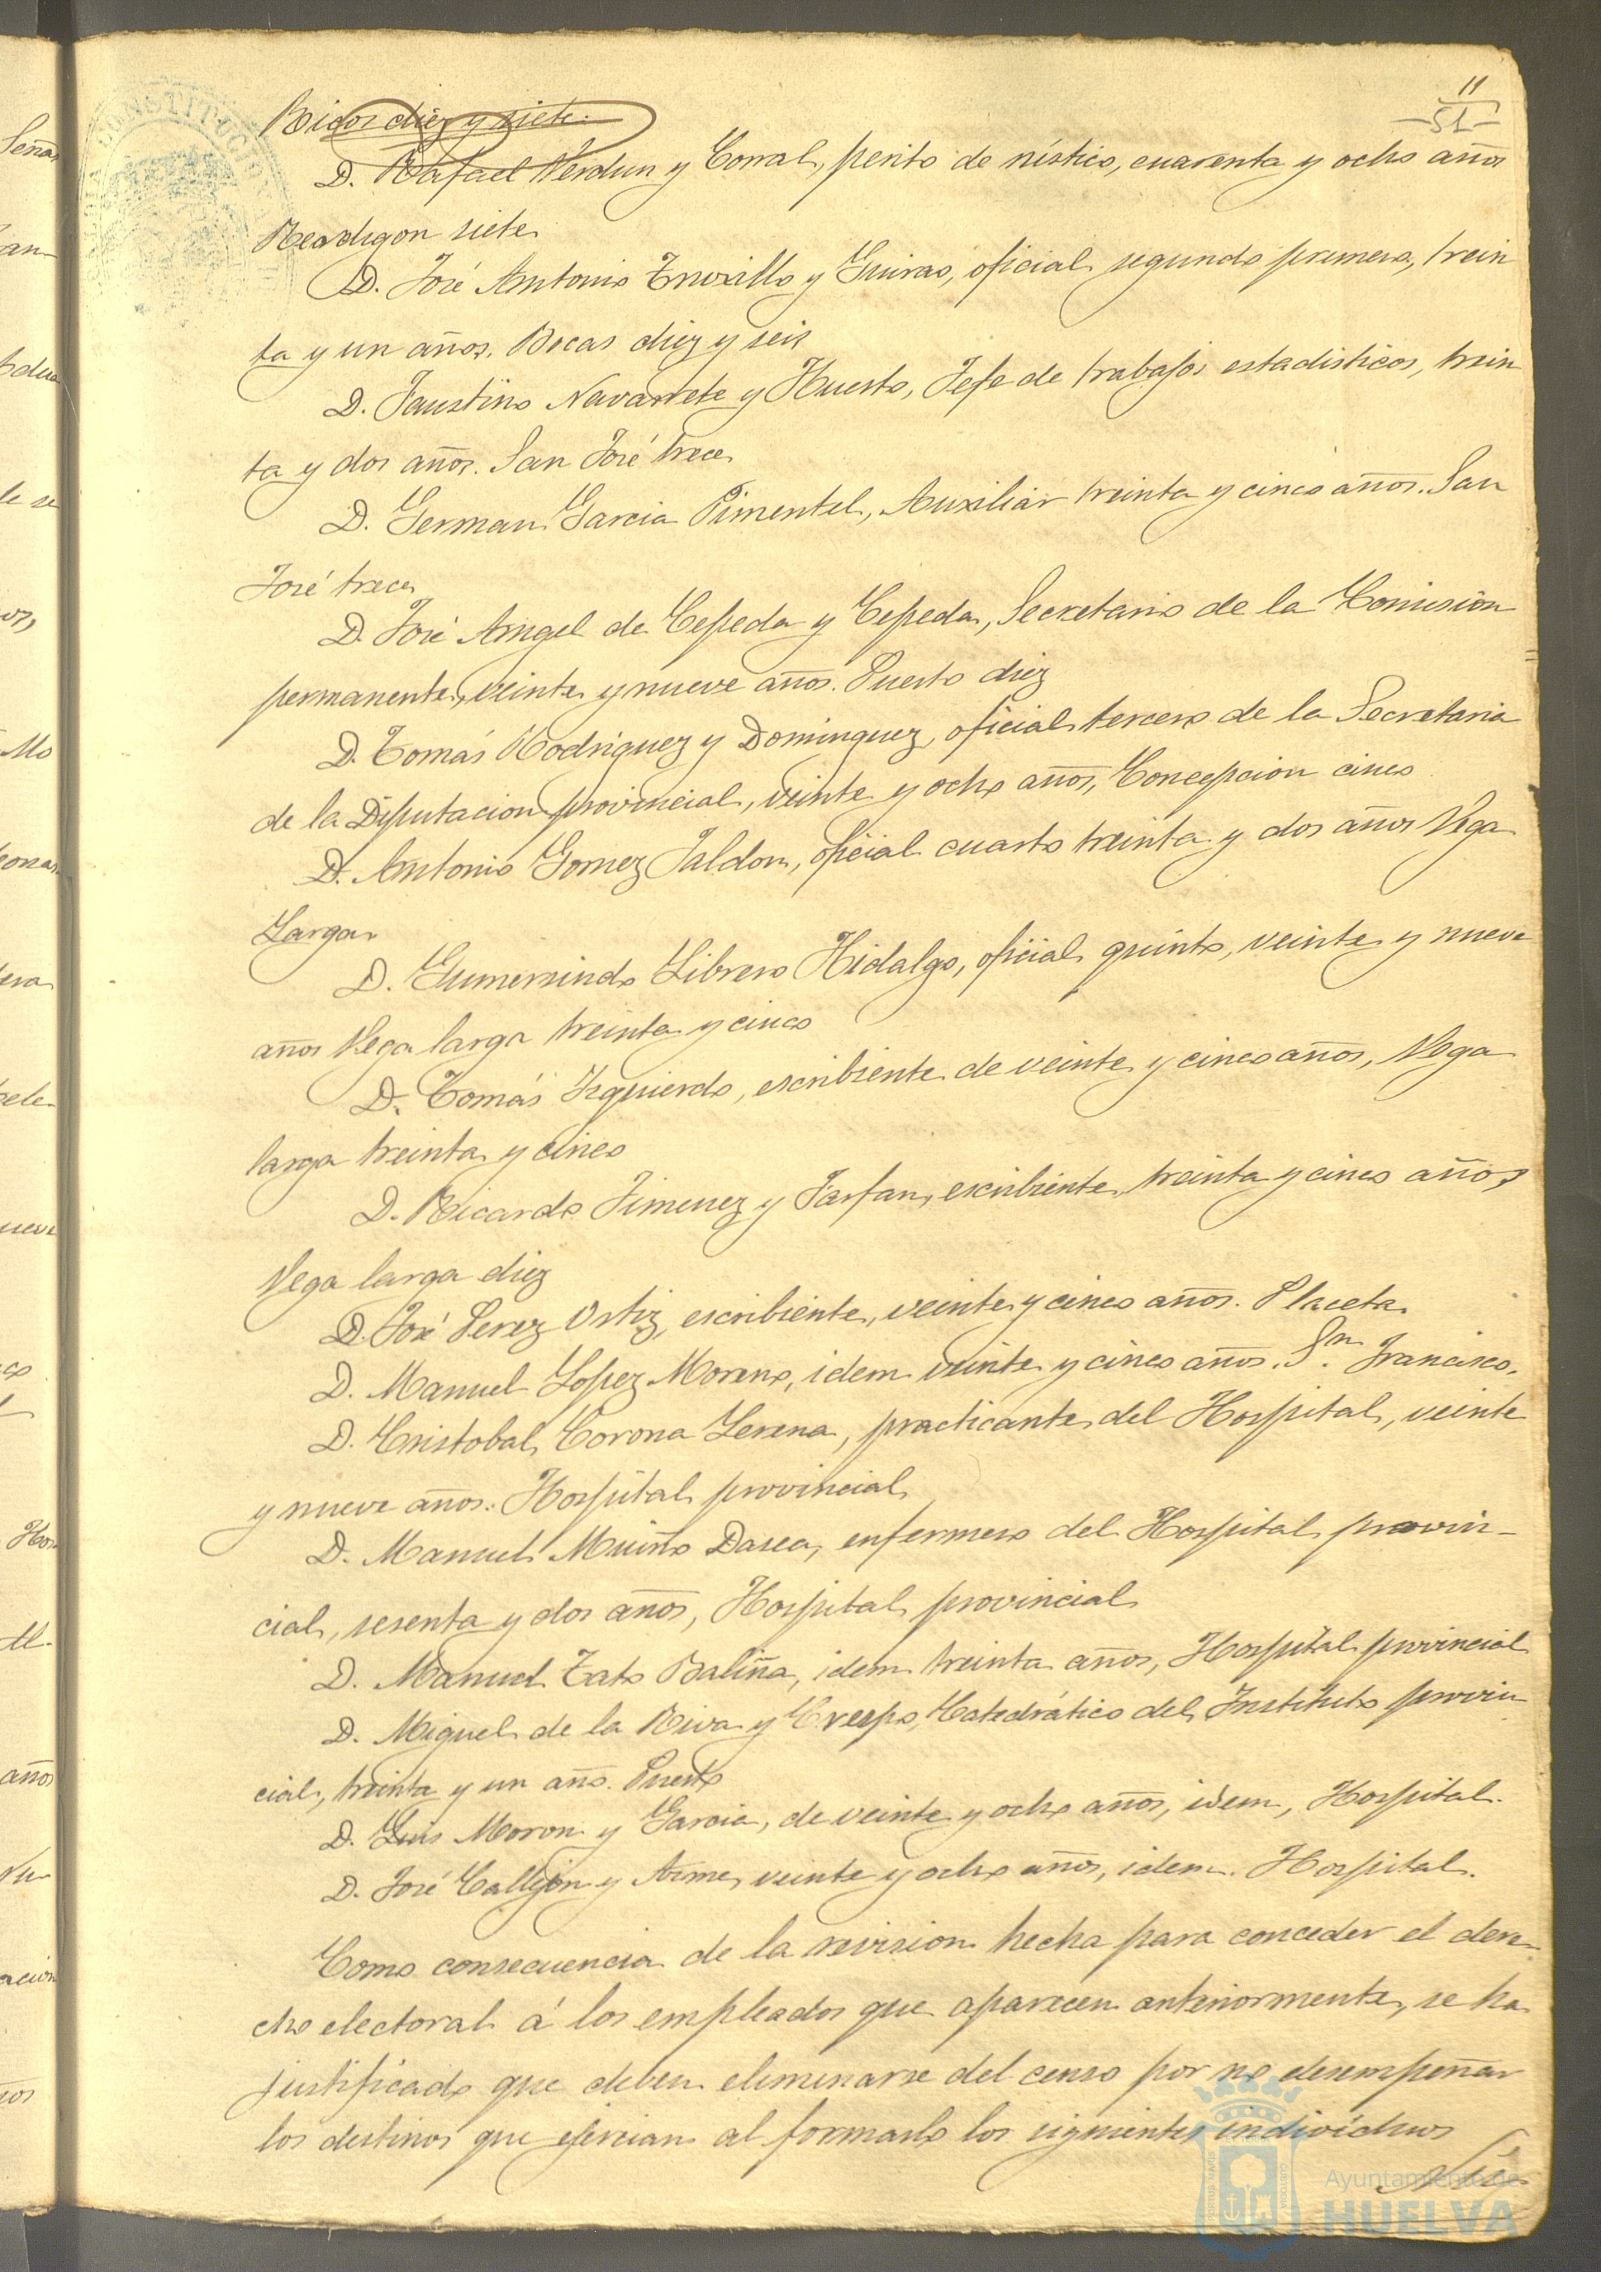 11
51
Ricos diez y siete.
D. Rafael Verdun y Corral, perito de rústico, cuarenta y ocho años
Rendigon siete
D. José Antonio Truxillo y Guirao, oficial segundo primero, trein
ta y un años. Bocas diez y seis
D. Faustino Navarrete y Huesto, Jefe de trabajos estadisticos, trein
ta y dos años. San José trece
D. German Garcia Pimentel, Auxiliar treinta y cinco años. San
José trece
D. José Amgel de Cepeda y Cepeda, Secretario de la Comision
permanente, veinte y nueve años. Puerto diez
D. Tomás Rodriguez y Dominguez, oficial tercero de la Secretaria
de la Diputacion provincial, veinte y ocho años, Concepcion cinco
D. Antonio Gomez Jaldon, oficial cuarto treinta y dos años Vega
Larga
D. Gumersindo Librero Hidalgo, oficial quinto, veinte y nueve
años Vega larga treinta y cinco
D. Tomás Izquierdo, escribiente de veinte y cinco años, Vega
larga treinta y cinco
D. Ricardo Jimenez y Farfan, escribiente, treinta y cinco años
Vega larga diez
D. José Perez Ortiz, escribiente, veinte y cinco años. Placeta
D. Manuel Lopez Moreno, idem veinte y cinco años. Sn. Francisco.
D. Cristobal Corona Lerena, practicante del Hospital, veinte
y nueve años. Hospital provincial
D. Manuel Muiño Dasea, enfermero del Hospital provin-
cial, sesenta y dos años, Hospital provincial
D. Manuel Tato Baliña, idem treinta años, Hospital provincial
D. Miguel de la Riva y Crespo, Catedrático del Instituto provin
cial, treinta y un año. Puerto
D. Luis Moron y Garcia, de veinte y ocho años, idem, Hospital.
D. José Callejon y Asme, veinte y ocho años, idem. Hospital.
Como consecuencia de la revision hecha para conceder el dere-
cho electoral á los empleados que aparecen anteriormente, se ha
justificado que deben eliminarse del censo por no desempeñar
los destinos que ejercian al formarlo los siguientes individuos
Ayuntamiento de
HUELVA